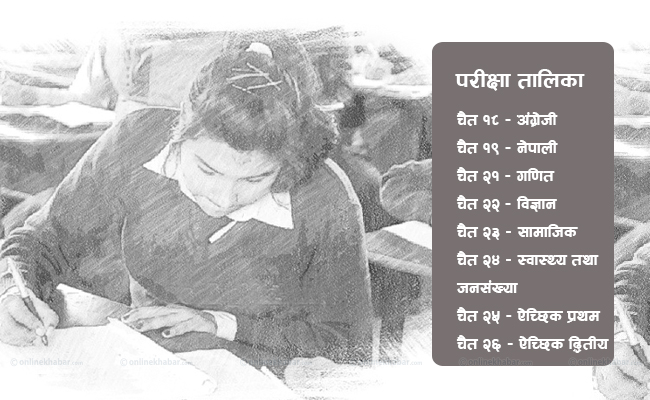 परीक्षा तालिका
चैत १८ - अंग्रेजी
चैत १९ - नेपाली
चैत २१ - गणित
चैत २२ - विज्ञान
चैत २३ - सामाजिक
चैत २४ - स्वास्थ्य तथा
जनसंख्या
चैत २५ - ऐच्छिक प्रथम
चैत २६ - ऐच्छिक द्वितीय
onlinekhabar.com
onlinekhabar.com